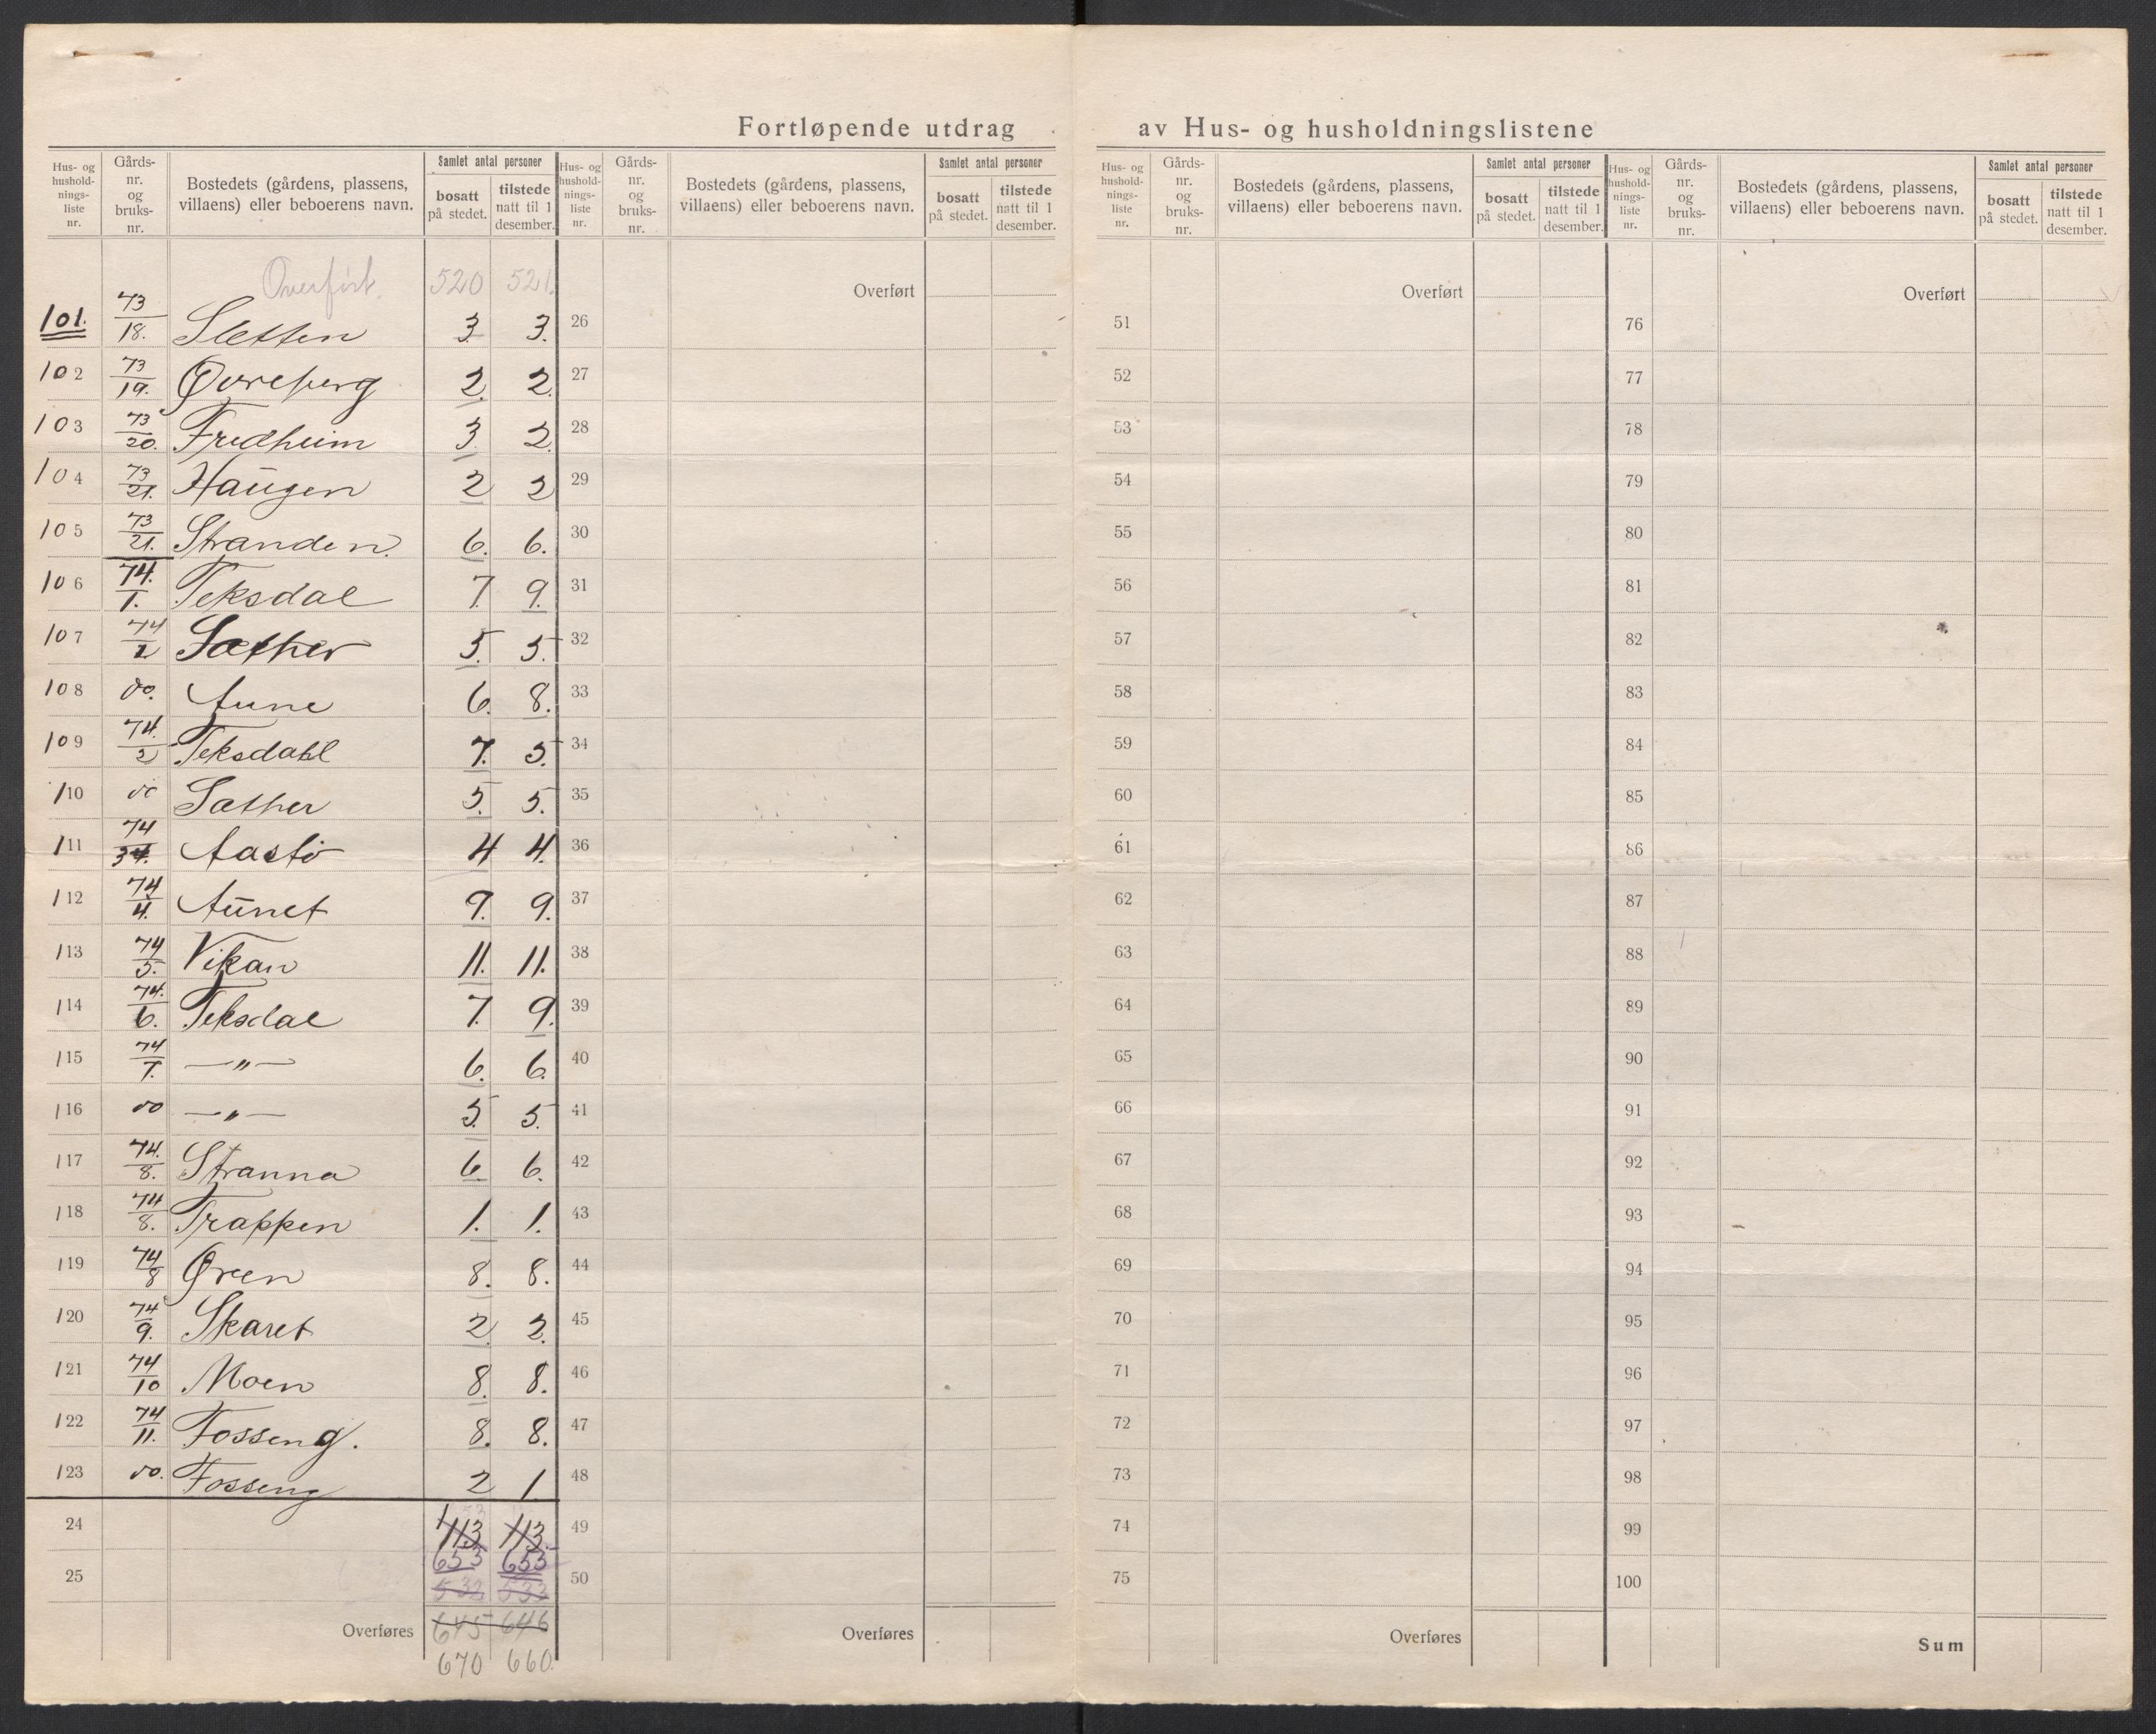 Fortløpende utdrag av Hus- og husholdningslistene
Hus- og husholdnings-liste nr. | Gårds-nr. og bruks-nr. | Bostedets (gårdens, plassens, villaens) eller beboerens navn. | Samlet antal personer bosatt på stedet. | tilstede natt til 1 desember.
Overført. 520 521.
101. 73/18. Sletten 3. 3.
102 73/19. Øvreberg 2. 2.
103 73/20. Fredheim 3. 2
104 73/21. Haugen 2 2
105 73/21. Stranden. 6. 6.
106 74./1. Teksdal 7. 9.
107 74/1 Sæther 5. 5.
108 do. Aune 6. 8.
109 74./2 Teksdahl 7. 5.
110 do Sæther 5. 5.
111 74/3 Aastø 4 4.
112 74/4. Aunet 9. 9.
113 74/5. Vikan 11. 11.
114 74./6. Teksdal 7. 9.
115 74/7. —„— 6. 6.
116 do —„— 5. 5.
117 74./8. Stranna 6. 6.
118 74/8. Trappen 1. 1.
119 74/8 Øren 8. 8.
120 74/9. Skaret 2. 2.
121 74/10 Moen 8. 8.
122 74/11. Fosseng. 8. 8.
123 do. Fosseng 2 1.
24 113 113.
653 655
25 532 533
Overføres 645 646
670 660.
Hus- og husholdnings-liste nr. | Gårds-nr. og bruks-nr. | Bostedets (gårdens, plassens, villaens) eller beboerens navn. | Samlet antal personer bosatt på stedet. | tilstede natt til 1 desember.
Overført
26
27
28
29
30
31
32
33
34
35
36
37
38
39
40
41
42
43
44
45
46
47
48
49
50
Overføres
Hus- og husholdnings-liste nr. | Gårds-nr. og bruks-nr. | Bostedets (gårdens, plassens, villaens) eller beboerens navn. | Samlet antal personer bosatt på stedet. | tilstede natt til 1 desember.
Overført
51
52
53
54
55
56
57
58
59
60
61
62
63
64
65
66
67
68
69
70
71
72
73
74
75
Overføres
Hus- og husholdnings-liste nr. | Gårds-nr. og bruks-nr. | Bostedets (gårdens, plassens, villaens) eller beboerens navn. | Samlet antal personer bosatt på stedet. | tilstede natt til 1 desember.
Overført
76
77
78
79
80
81
82
83
84
85
86
87
88
89
90
91
92
93
94
95
96
97
98
99
100
Sum